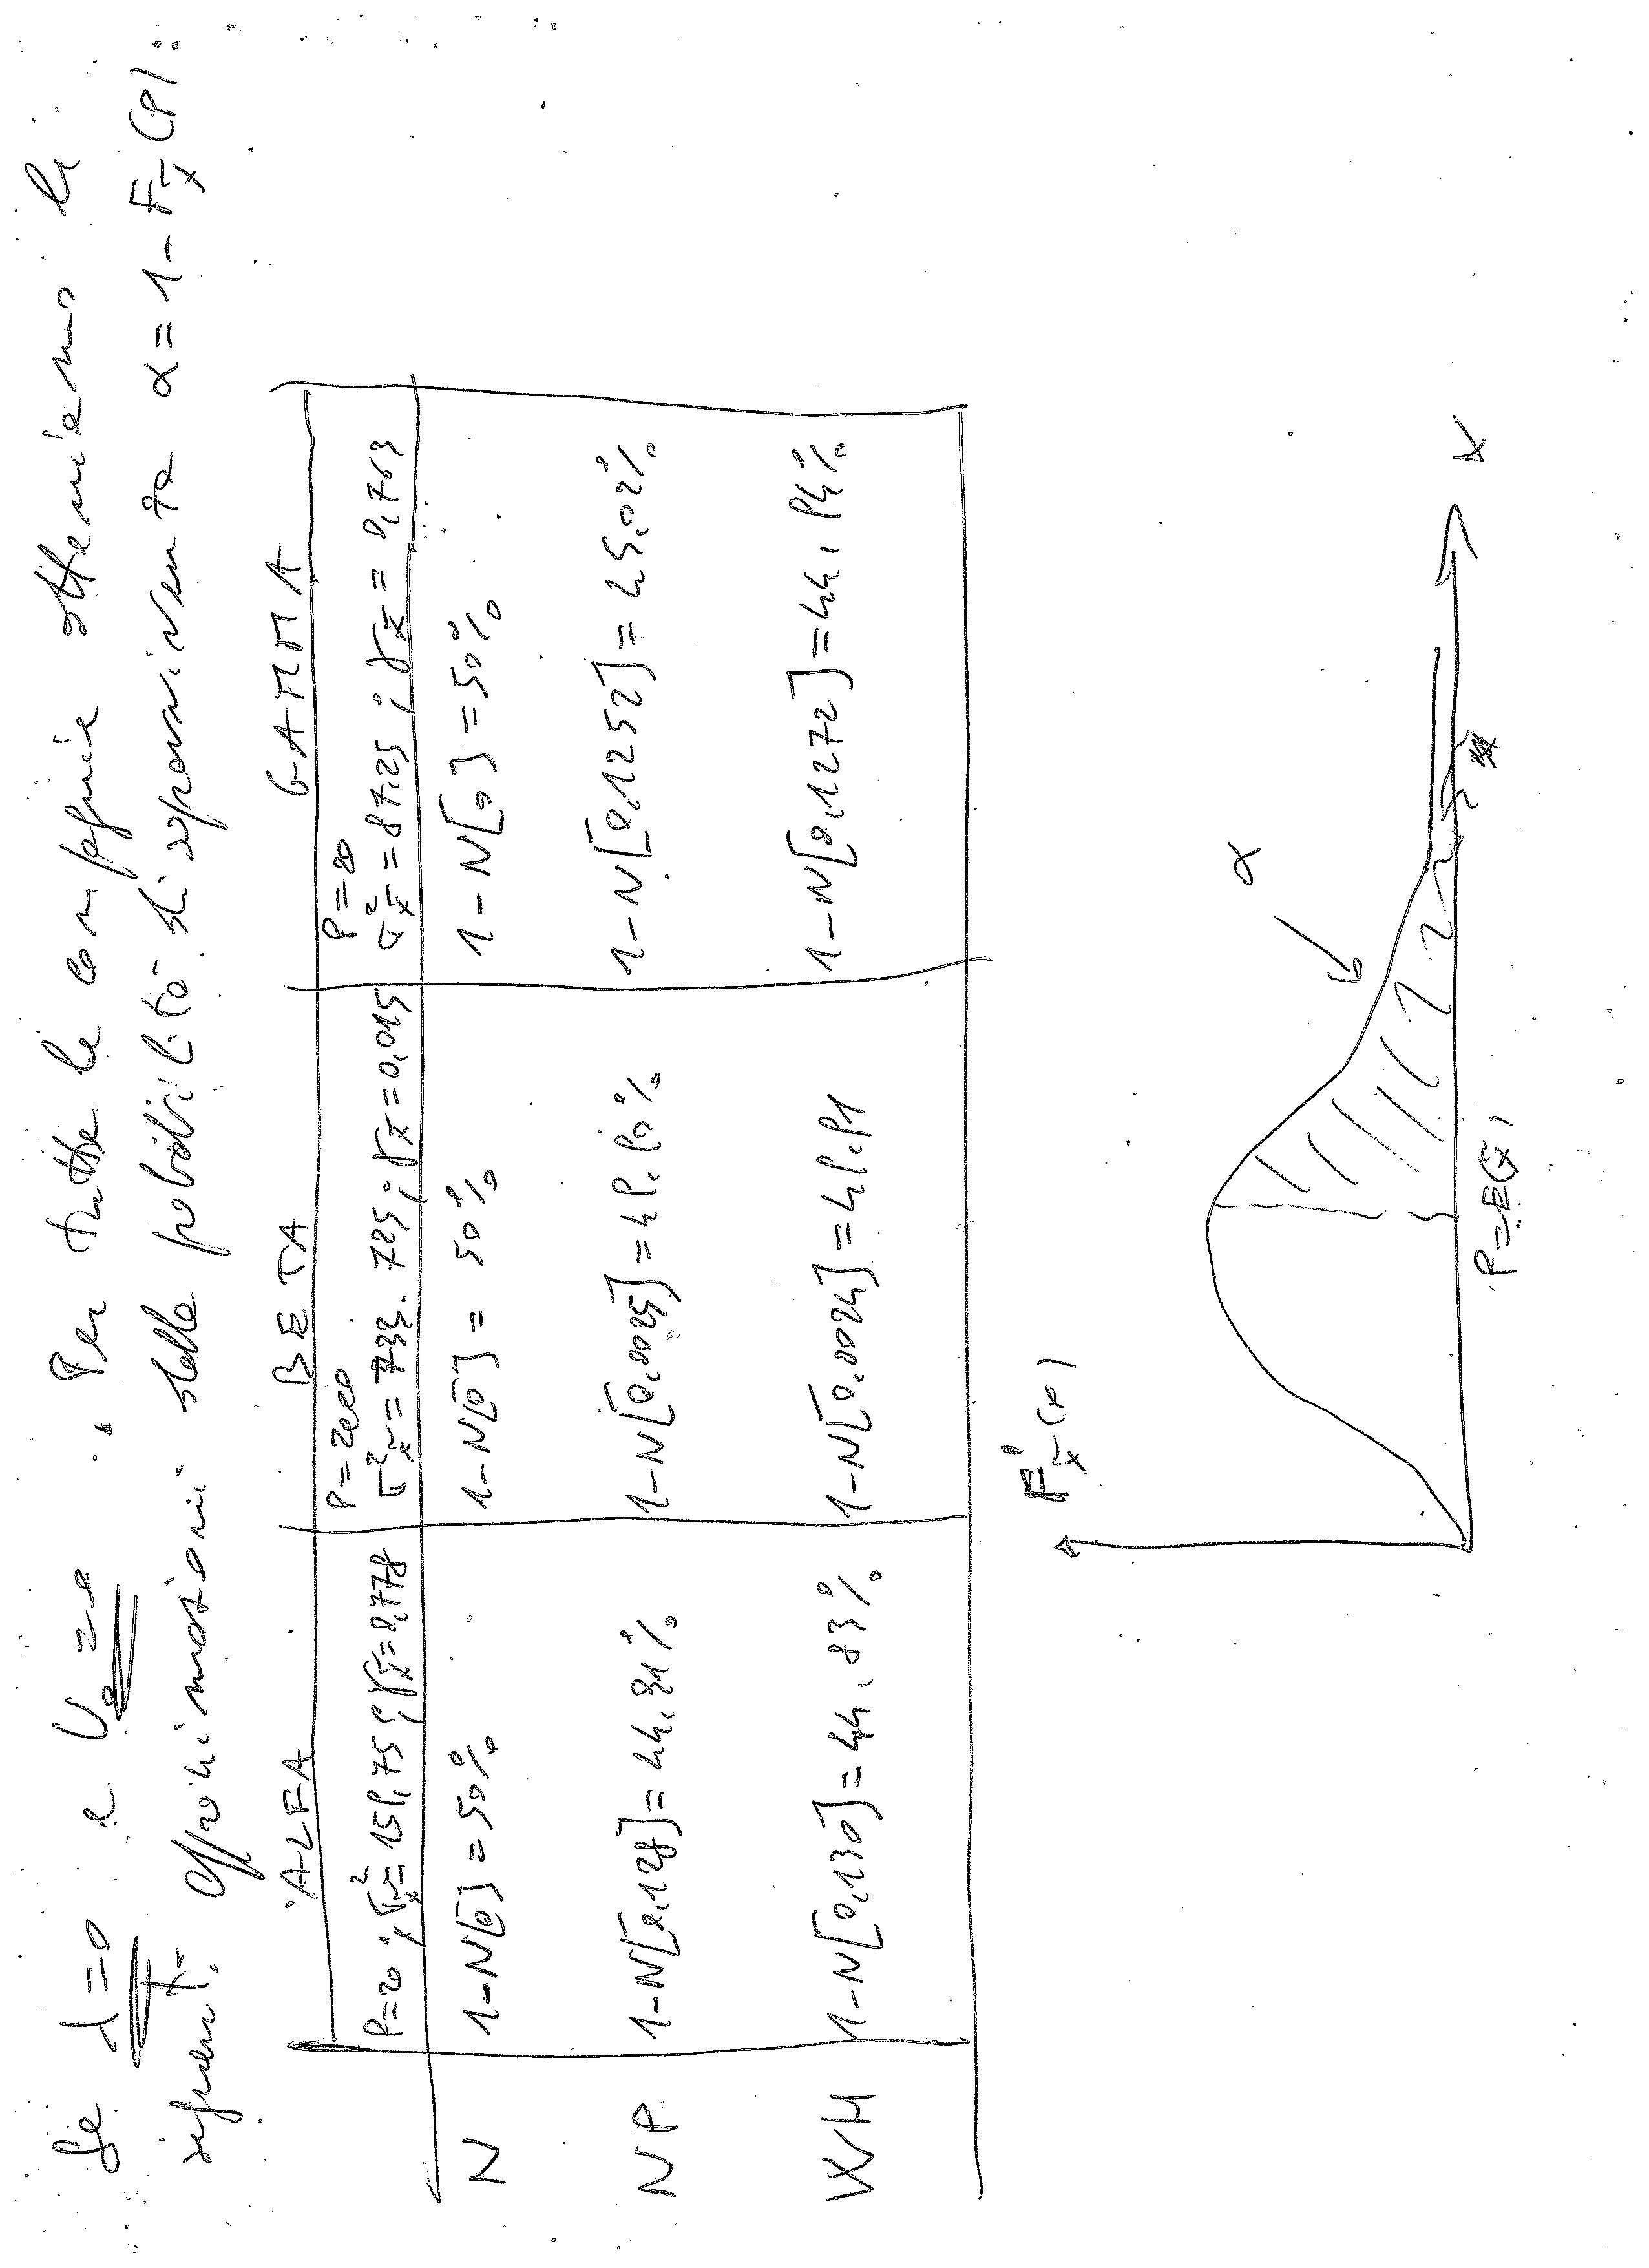 Se λ=0 e U₀=0. Per tutte le compagnie otteniamo le
seguenti approssimazioni delle probabilità di sopravvivenza α=1-F_x̃(P):
ALFA BETA GAMMA
P=20; σ²_x̃=159,75; γ_x̃=0,778 P=2000 σ²_x̃=733.725; γ_x̃=0,015 P=20 σ²_x̃=87,25; γ_x̃=0,763
N 1-N[0]=50% 1-N[0]=50% 1-N[0]=50%
NP 1-N[0,128]=44,91% 1-N[0,0025]=49,90% 1-N[0,1252]=45,02%
WH 1-N[0,130]=44,83% 1-N[0,0024]=49,91 1-N[0,1272]=44,94%
F'_x̃(x)
α
P=E(x̃)
x